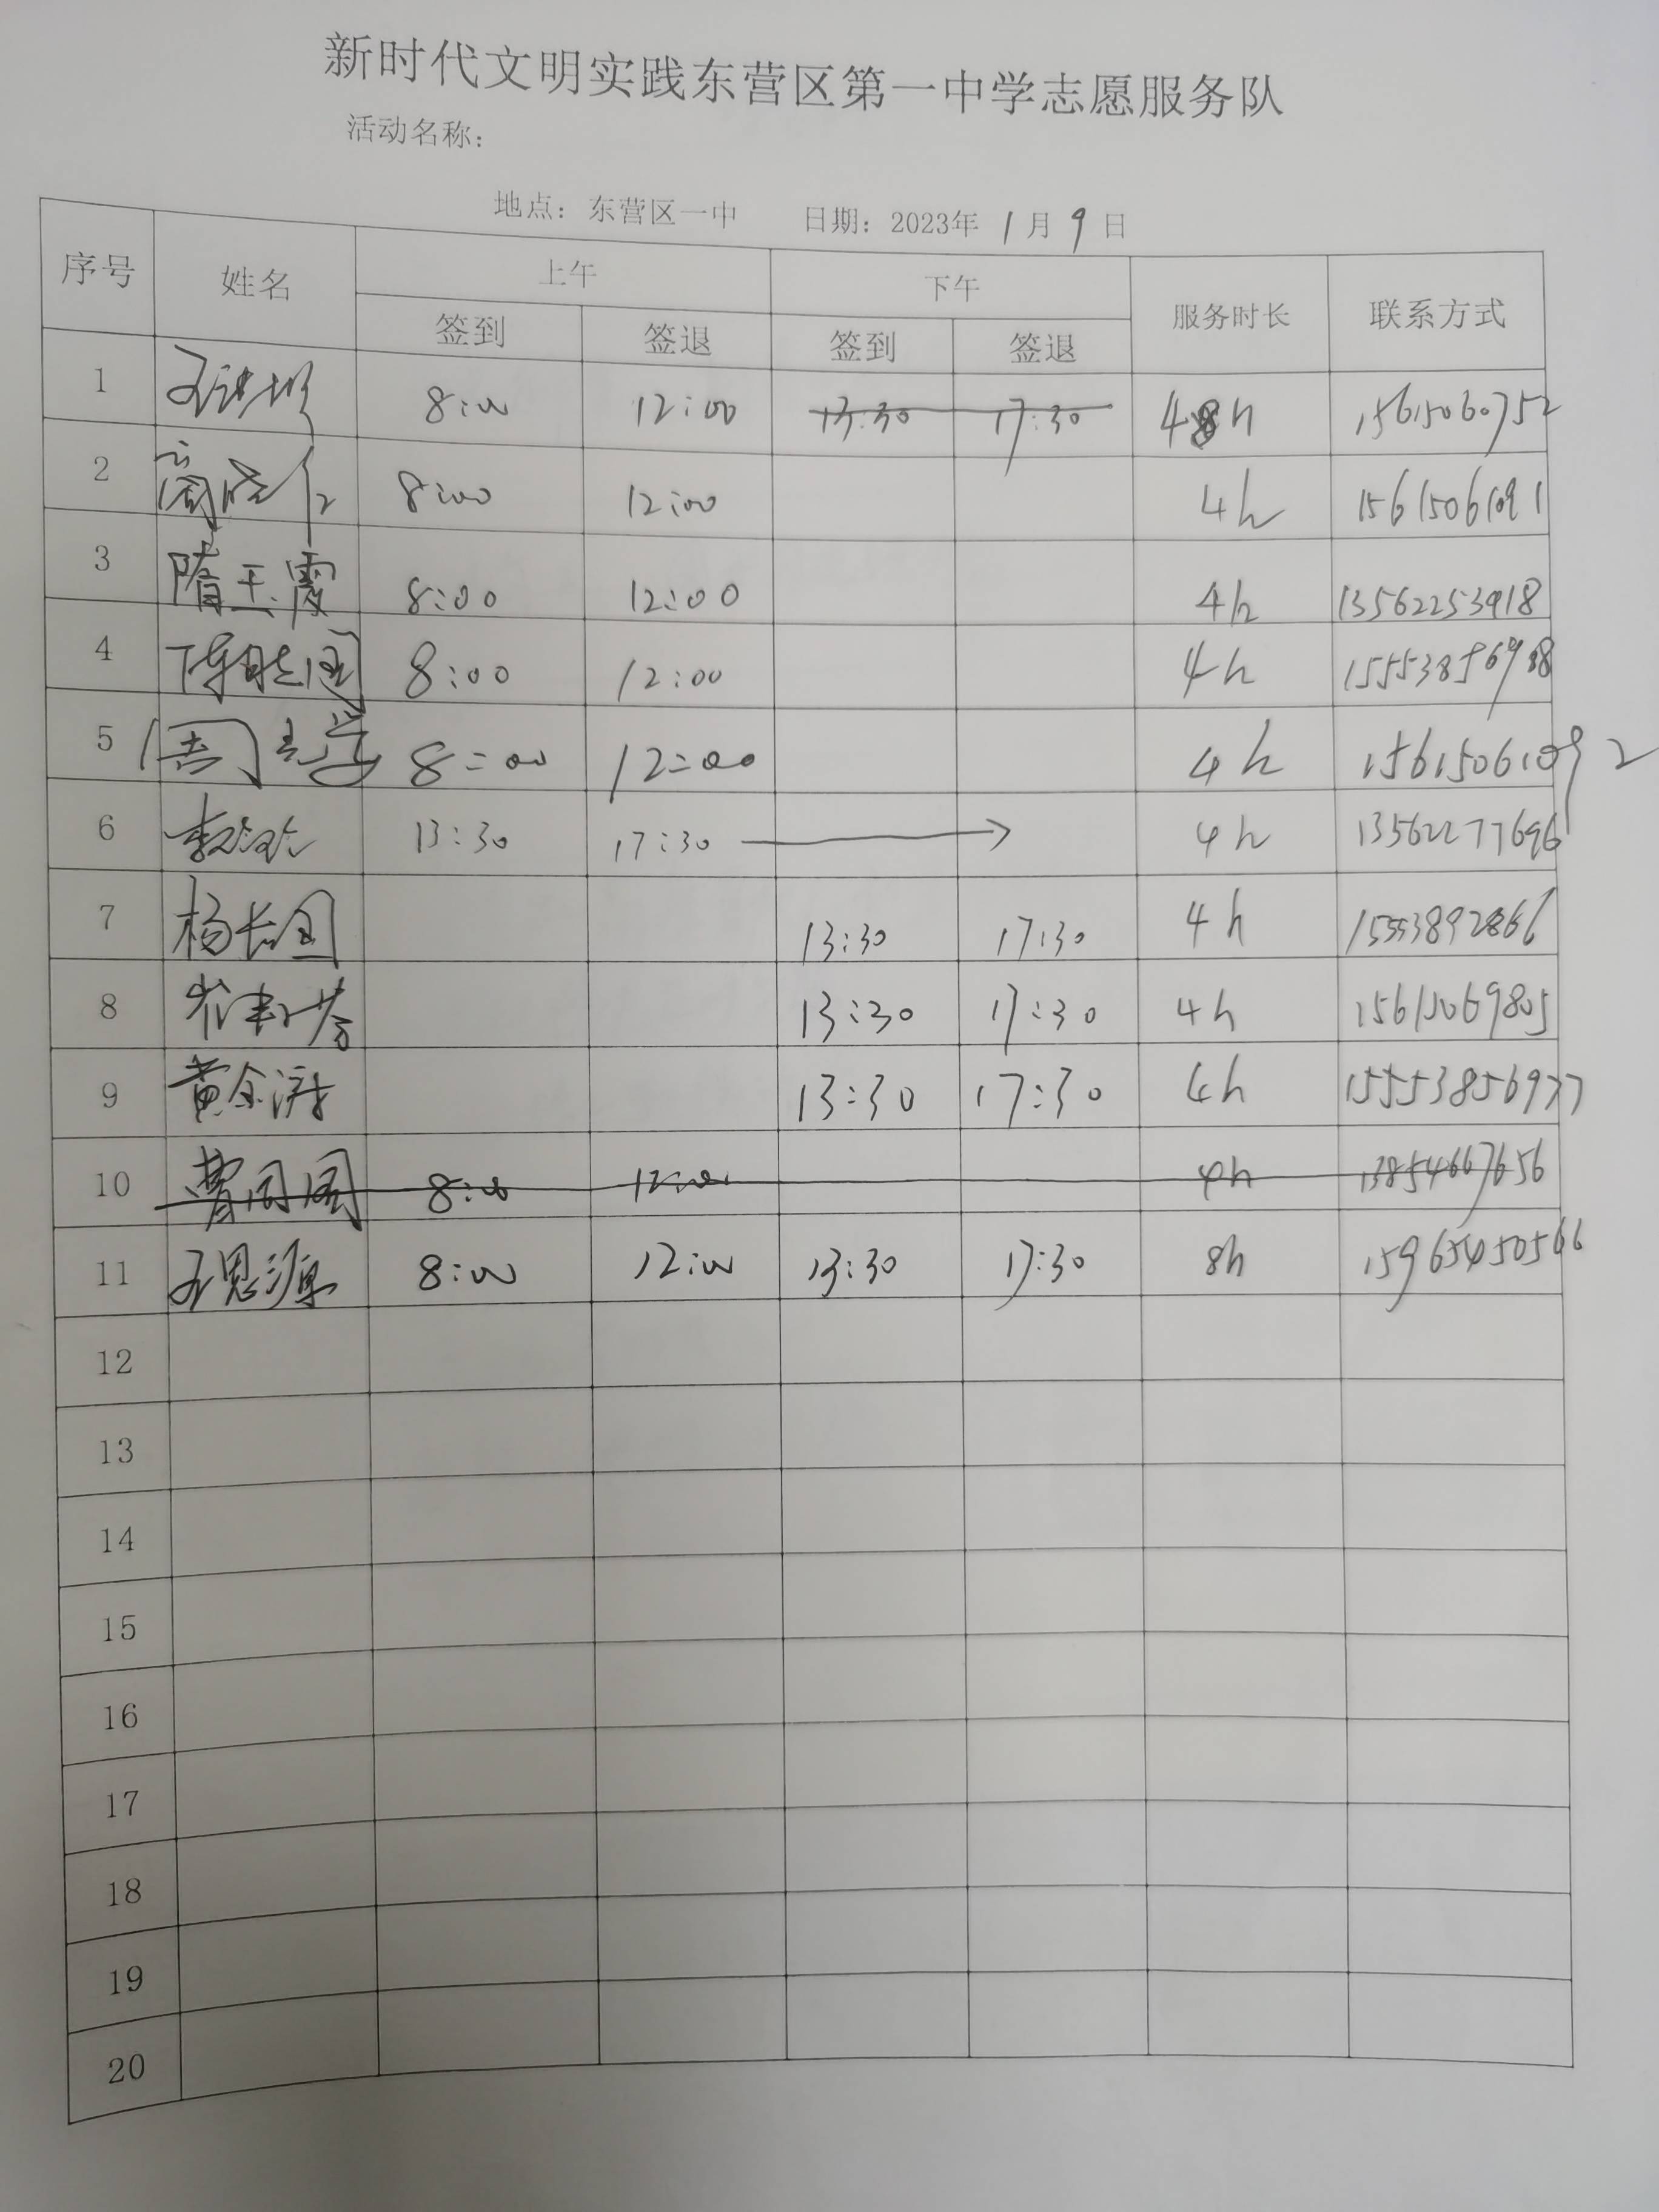 新时代文明实践东营区第一中学志愿服务队
活动名称：
地点：东营区一中 日期：2023年 1 月 9 日
序号 姓名 上午 下午 服务时长 联系方式
签到 签退 签到 签退
1 8:00 12:00 13:30 17:30 48h 15615060752
2 8:00 12:00 4h 15615061091
3 隋玉霞 8:00 12:00 4h 13562253918
4 8:00 12:00 4h
5 8:00 12:00 4h 15615061092
6 13:30 17:30 → 4h 13562277696
7 杨长国 13:30 17:30 4h 15553892866
8 13:30 17:30 4h 15615069805
9 黄金涛 13:30 17:30 4h 15553856977
10 曹同国 8:00 12:00 4h 13854667656
11 王恩源 8:00 12:00 13:30 17:30 8h 15965450566
12
13
14
15
16
17
18
19
20